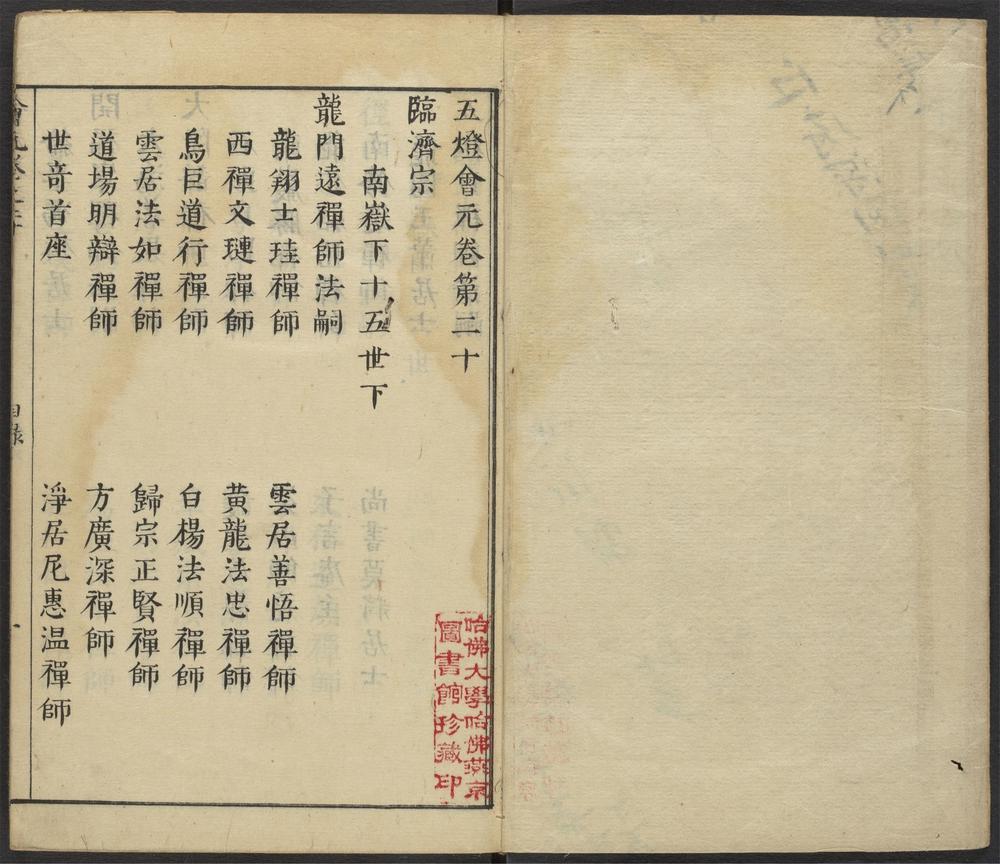 五燈會元卷第二十
臨濟宗
南嶽下十五世下
龍門遠禪師法嗣
龍翔士珪禪師
雲居善悟禪師
西禪文璉禪師
黃龍法忠禪師
烏巨道行禪師
白楊法順禪師
雲居法如禪師
歸宗正賢禪師
道場明辯禪師
方廣深禪師
世奇首座
淨居尼惠温禪師
目錄
一
哈佛大學哈佛燕京
圖書館珍藏印